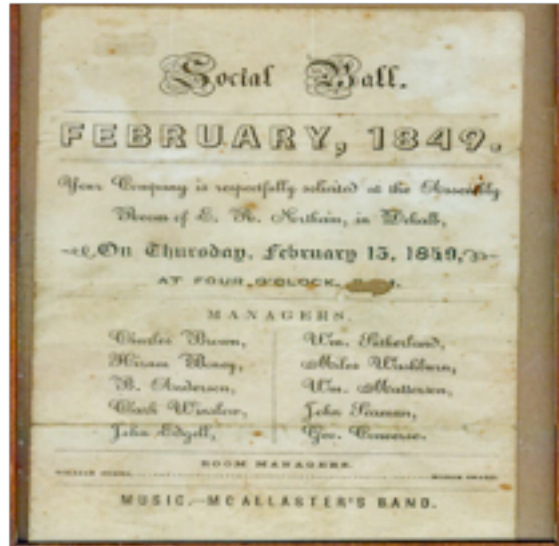 Social Ball.
FEBRUARY, 1849.
Your Company is respectfully solicited at the Assembly
Room of E. in Dekalb,
On Thursday, February 15, 1849,
AT FOUR O'CLOCK,
MANAGERS.
Charles Brown,
Hiram
B. Anderson,
Clark Winslow,
John Edgell,
Wm. Sutherland,
Miles Washburn,
Wm. Matterson,
John Seaman,
Geo. Converse.
ROOM MANAGERS.
MUSIC,—MCALLASTER'S BAND.